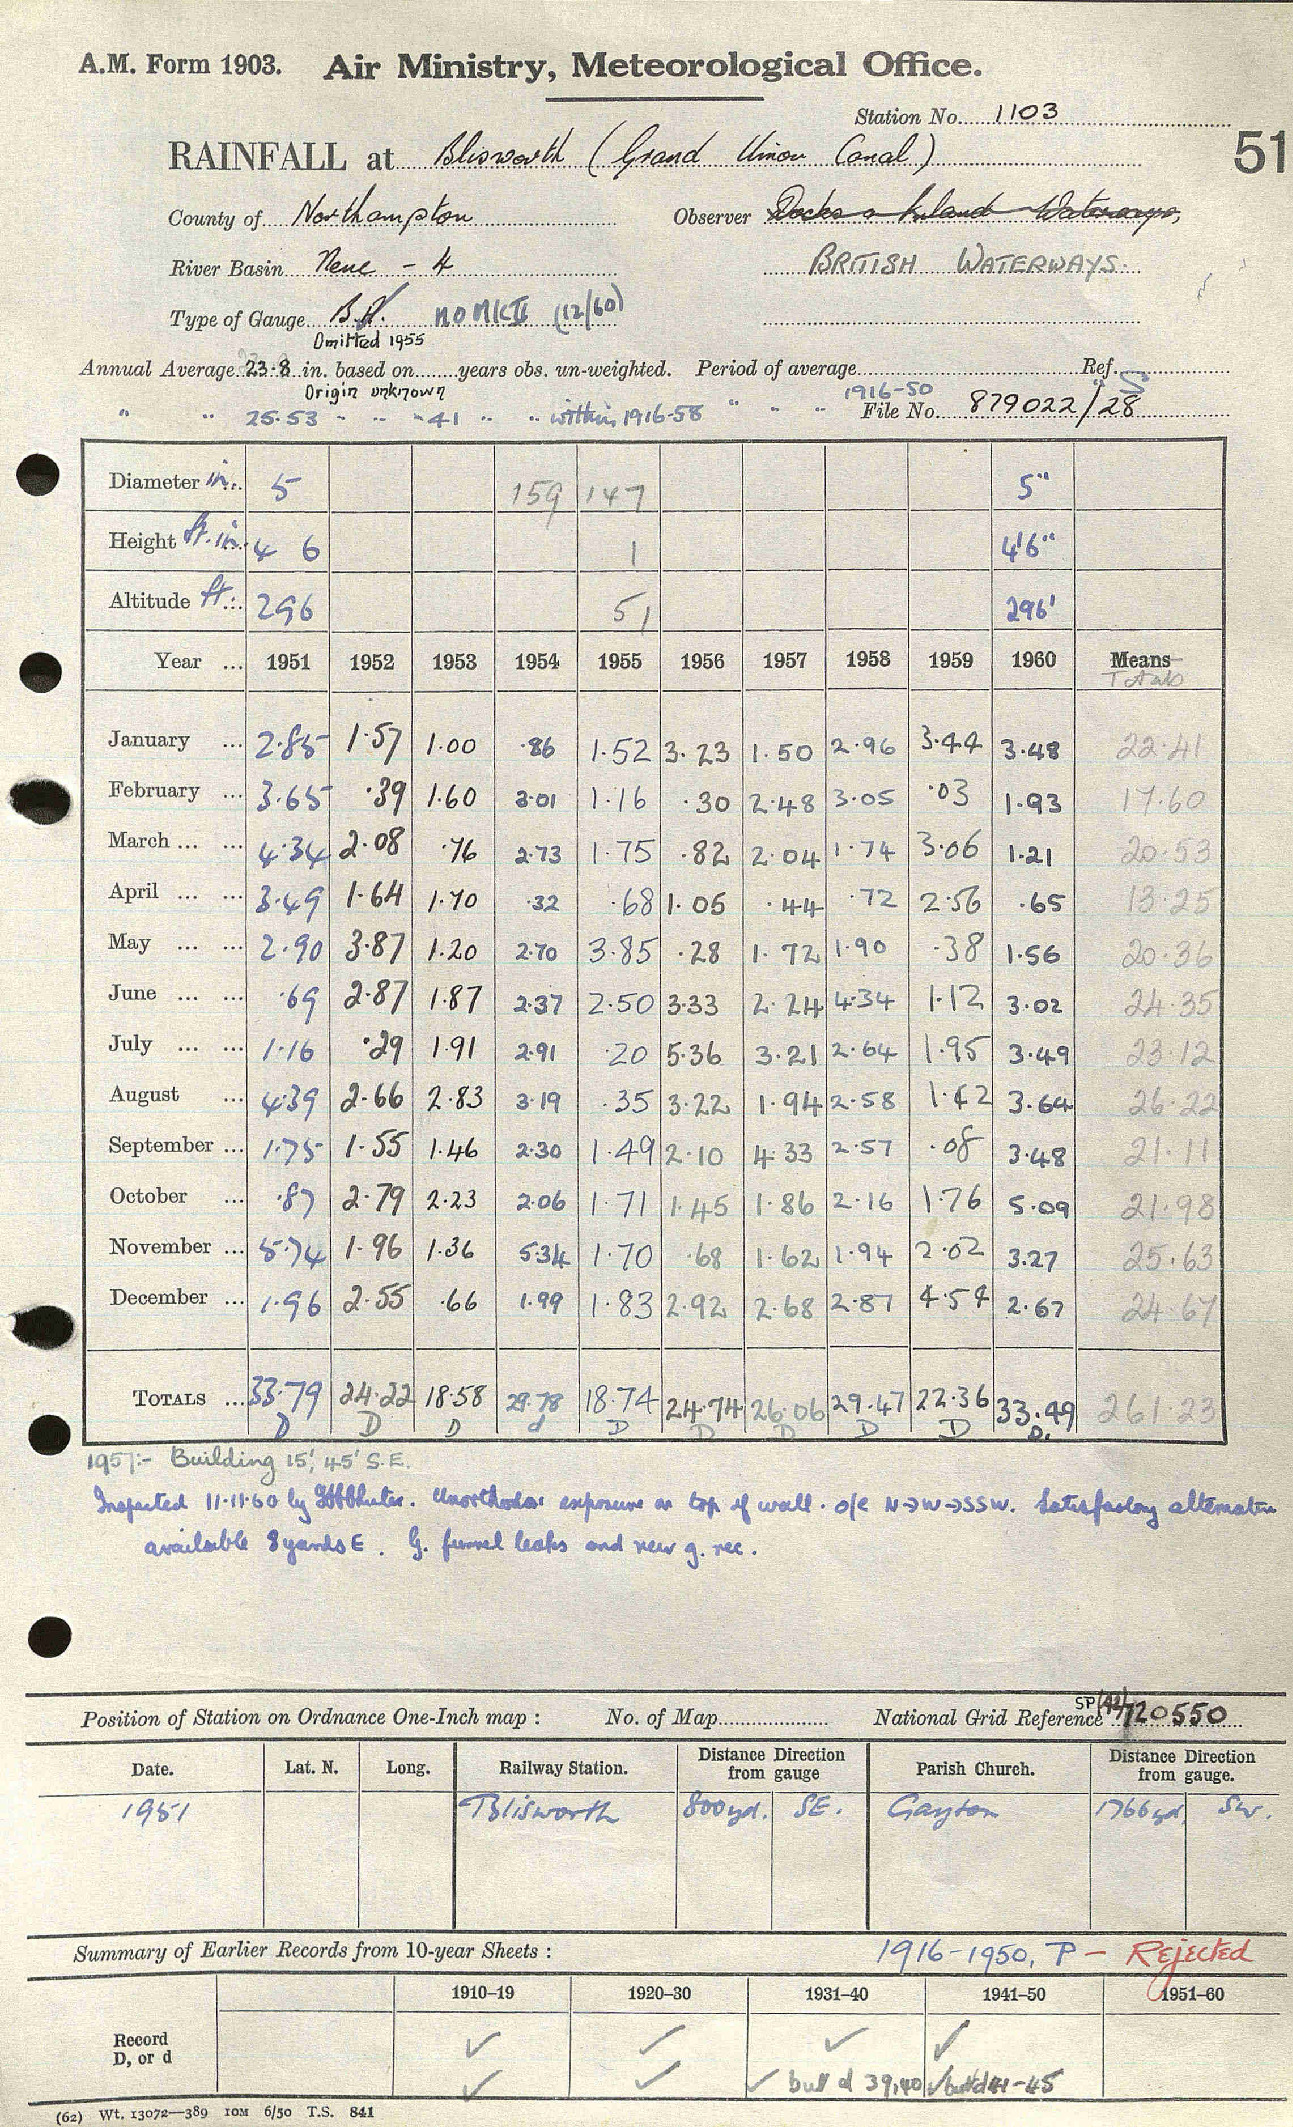 A.M. Form 1903. Air Ministry, Meteorological Office.
Station No. 1103
51
RAINFALL at Blisworth (Grand Union Canal)
County of Northampton Observer Docks & Inland Waterways,
River Basin Nene - 4 BRITISH WATERWAYS.
Type of Gauge MO MK II (12/60)
Omitted 1955
Annual Average 23.8 in. based on ...... years obs. un-weighted. Period of average Ref.
Origin unknown
" " 25.53 " " 41 " " within 1916-58 " " " 1916-50 File No. 879022/28
Diameter in. 5 159 147 5"
Height ft. in. 4 6 1 4'6"
Altitude ft. 296 51 296'
Year ... 1951 1952 1953 1954 1955 1956 1957 1958 1959 1960 Means Totals
January ... 2.85 1.57 1.00 .86 1.52 3.23 1.50 2.96 3.44 3.48 22.41
February ... 3.65 .39 1.60 3.01 1.16 .30 2.48 3.05 .03 1.93 17.60
March ... ... 4.34 2.08 .76 2.73 1.75 .82 2.04 1.74 3.06 1.21 20.53
April ... ... 3.49 1.64 1.70 .32 .68 1.05 .44 .72 2.56 .65 13.25
May ... ... 2.90 3.87 1.20 2.70 3.85 .28 1.72 1.90 .38 1.56 20.36
June ... ... .69 2.87 1.87 2.37 2.50 3.33 2.24 4.34 1.12 3.02 24.35
July ... ... 1.16 .29 1.91 2.91 .20 5.36 3.21 2.64 1.95 3.49 23.12
August ... 4.39 2.66 2.83 3.19 .35 3.22 1.94 2.58 1.42 3.64 26.22
September ... 1.75 1.55 1.46 2.30 1.49 2.10 4.33 2.57 .08 3.48 21.11
October ... .87 2.79 2.23 2.06 1.71 1.45 1.86 2.16 1.76 5.09 21.98
November ... 5.74 1.96 1.36 5.34 1.70 .68 1.62 1.94 2.02 3.27 25.63
December ... 1.96 2.55 .66 1.99 1.83 2.92 2.68 2.87 4.54 2.67 24.67
TOTALS ... 33.79 24.22 18.58 29.78 18.74 24.74 26.06 29.47 22.36 33.49 261.23
D D D d D D D D D D.
1957:- Building 15', 45' S.E.
Inspected 11.11.60 by Unorthodox exposure on top of wall. o/e N→W→SSW. Satisfactory alternative
available 8 yards E. G. funnel leaks and new g. rec.
Position of Station on Ordnance One-Inch map : No. of Map National Grid Reference SP (42) 720550
Date. Lat. N. Long. Railway Station. Distance Direction from gauge Parish Church. Distance Direction from gauge.
1951 Blisworth 800yd. SE. Gayton 1766yd SW.
Summary of Earlier Records from 10-year Sheets : 1916-1950, P - Rejected
1910-19 1920-30 1931-40 1941-50 1951-60
Record ✓ ✓ ✓ ✓
D, or d ✓ ✓ ✓ but d 39,40 ✓ but d 41-45
(62) Wt. 13072—389 10M 6/50 T.S. 841